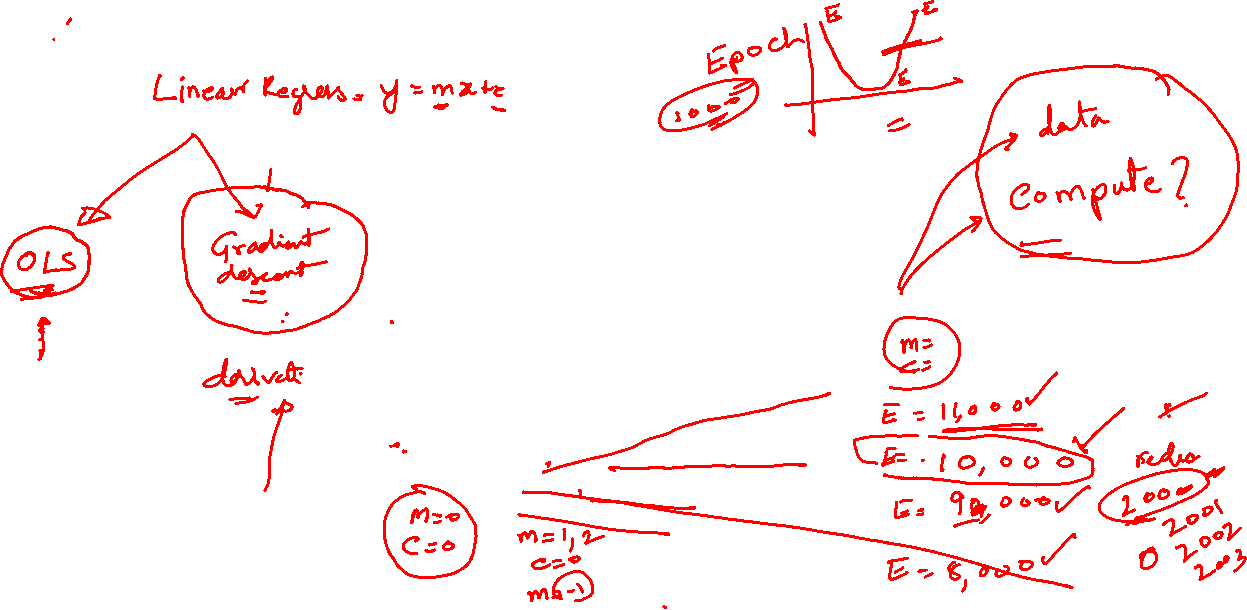 Linear Regress. y = mx+c
OLS
Gradient
descent
derivati
Epoch
1000
E
E
E
data
Compute?
m=
c=
E = 11,000
E= 10,000
E= 90,000
E = 8,000
M=0
C=0
m=1,2
c=0
-1
2000
2001
0 2002
2003